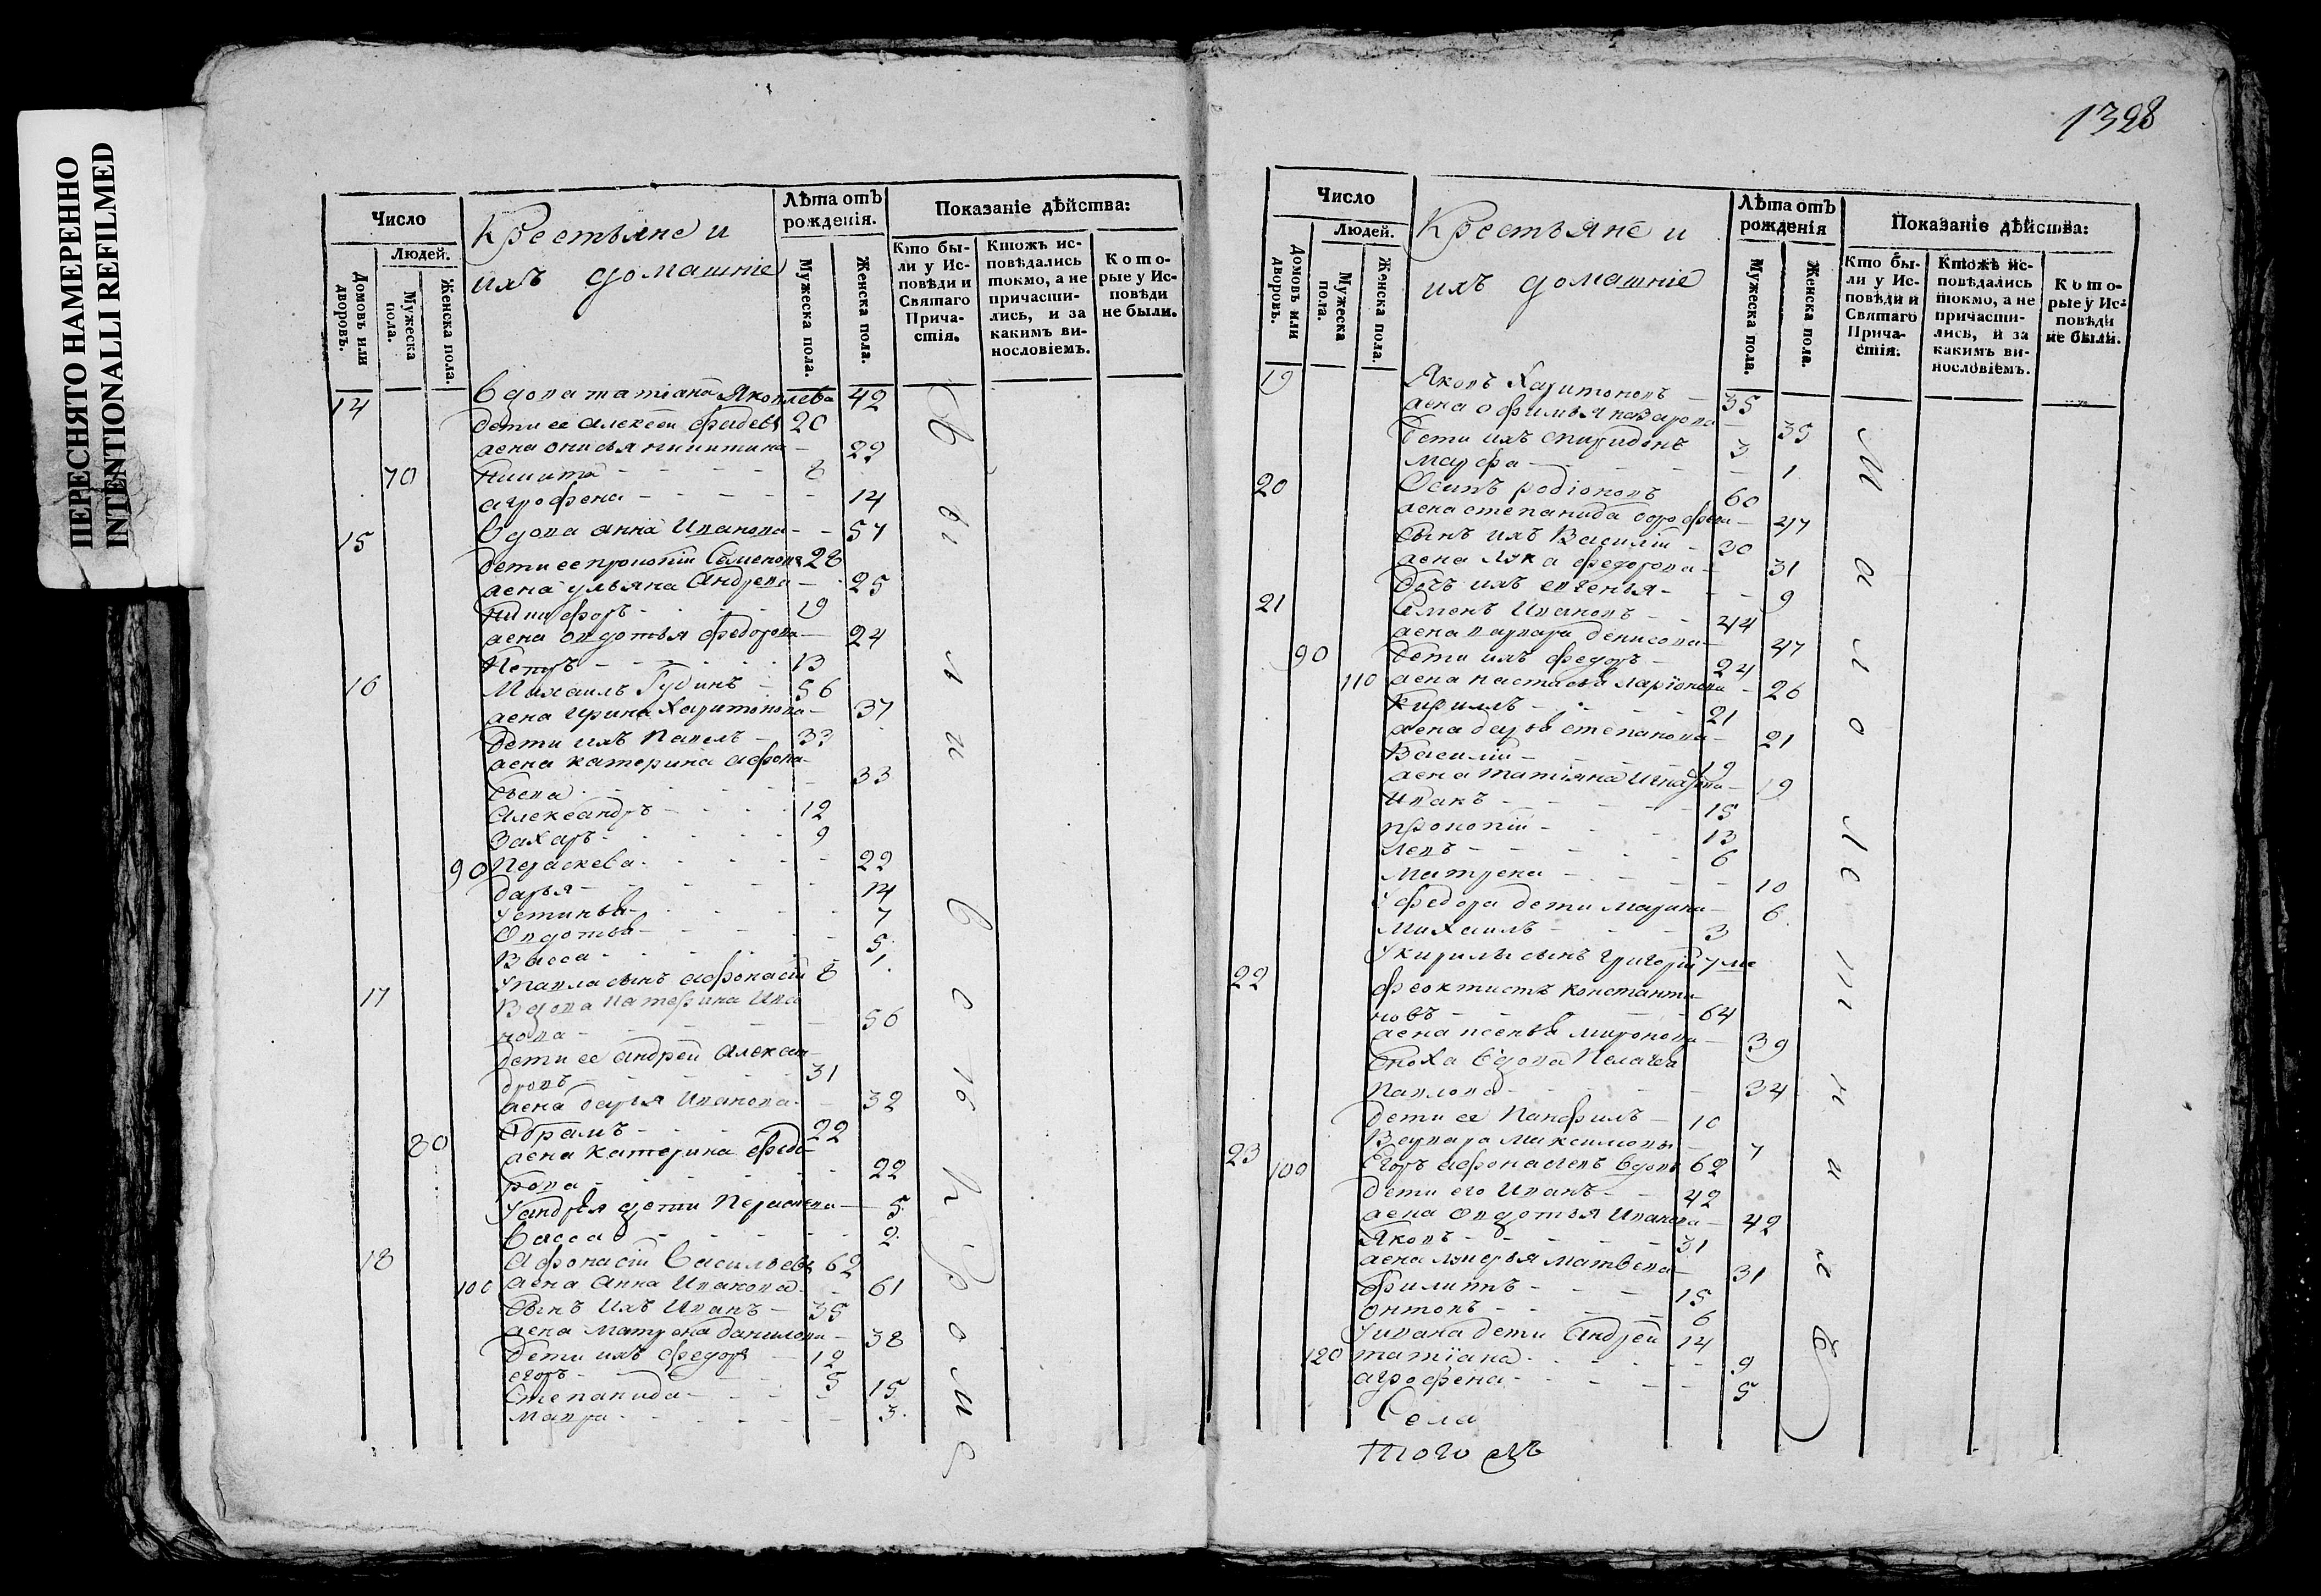 ПЕРЕСНЯТО НАМЕРЕННО
INTENTIONALLI REFILMED
Число
Людей.
Домовъ или дворовъ.
Мужеска пола.
Женска пола.
Крестьяне и
ихъ домашніе
Лѣта отъ рожденія.
Мужеска пола.
Женска пола.
Показаніе дѣйства:
Кто были у Исповѣди и Святаго Причастія.
Ктожъ исповѣдались токмо, а не причастились, и за какимъ винословіемъ.
Которые у Исповѣди не были.
14 Вдова татіана Яковлева 42
дети ее алексеи фадеевъ 20
жена онисья никитина 22
70 Никита 8
агрофена 14
15 Вдова анна Иванова 57
дети ее прокопій Семеновъ 28
жена ульяна андреева 25
Никифоръ 19
жена овдотья федорова 24
Петръ 13
16 Михаилъ Гудинъ 56
жена ирина Харитонова 37
дети ихъ Павелъ 33
жена катерина афона-
сьева 33
Александръ 12
Захаръ 9
90 Пераскева 22
дарья 14
Устинья 7
Овдотья 5
Васса 1
У павла сынъ афонасіи 8
17 Вдова катерина Ива
нова 56
дети ее андрей алексан
дровъ 31
жена дарья Иванова 32
80 Абрамъ 22
жена катерина федо-
рова 22
У андрея дети Пераскева 5
Васса 2
18 Афонасіи Васильевъ 62
100 жена анна Иванова 61
Сынъ ихъ Иванъ 35
жена матрена данилова 38
дети ихъ федоръ 12
егоръ 5
Степанида 15
мавра 3
1328
Число
Людей.
Домовъ или дворовъ.
Мужеска пола.
Женска пола.
Крестьяне и
ихъ домашніе
Лѣта отъ рожденія
Мужеска пола.
Женска пола.
Показаніе дѣйства:
Кто были у Исповѣди и Святаго Причастія.
Ктожъ исповѣдались токмо, а не причастились, и за какимъ винословіемъ.
Которые у Исповѣди не были.
19 Яковъ Харитоновъ 35
жена офимья назарова 35
дети ихъ спиридонъ 3
марфа 1
20 Осипъ родіоновъ 60
жена степанида 47
сынъ ихъ Василій 30
жена федорова 31
дочь ихъ евгенья 9
21 Семенъ Ивановъ 44
жена варвара денисова 47
90 дети ихъ федоръ 24
110 жена настасья ларіонова 26
Кирилъ 21
жена дарья степанова 21
Василій 19
жена татіяна 19
Иванъ 15
прокопіи 13
левъ 6
Матрена 10
У федора дети марина 6
Михаилъ 3
У кирилы сынъ григорій 7 ме
22 феоктистъ константи-
новъ 64
жена ксенья миронова 39
Сноха вдова Пелагея
Павлова 34
дети ее Панфилъ 10
Варвара максимовы 7
23 100 Егоръ афонасьевъ вдовъ 62
дети его Иванъ 42
жена овдотья Иванова 42
Яковъ 31
жена матвеева 31
филипъ 15
онтонъ 6
У ивана дети андреи 14
120 татіана 9
агрофена 5
Села
того жъ